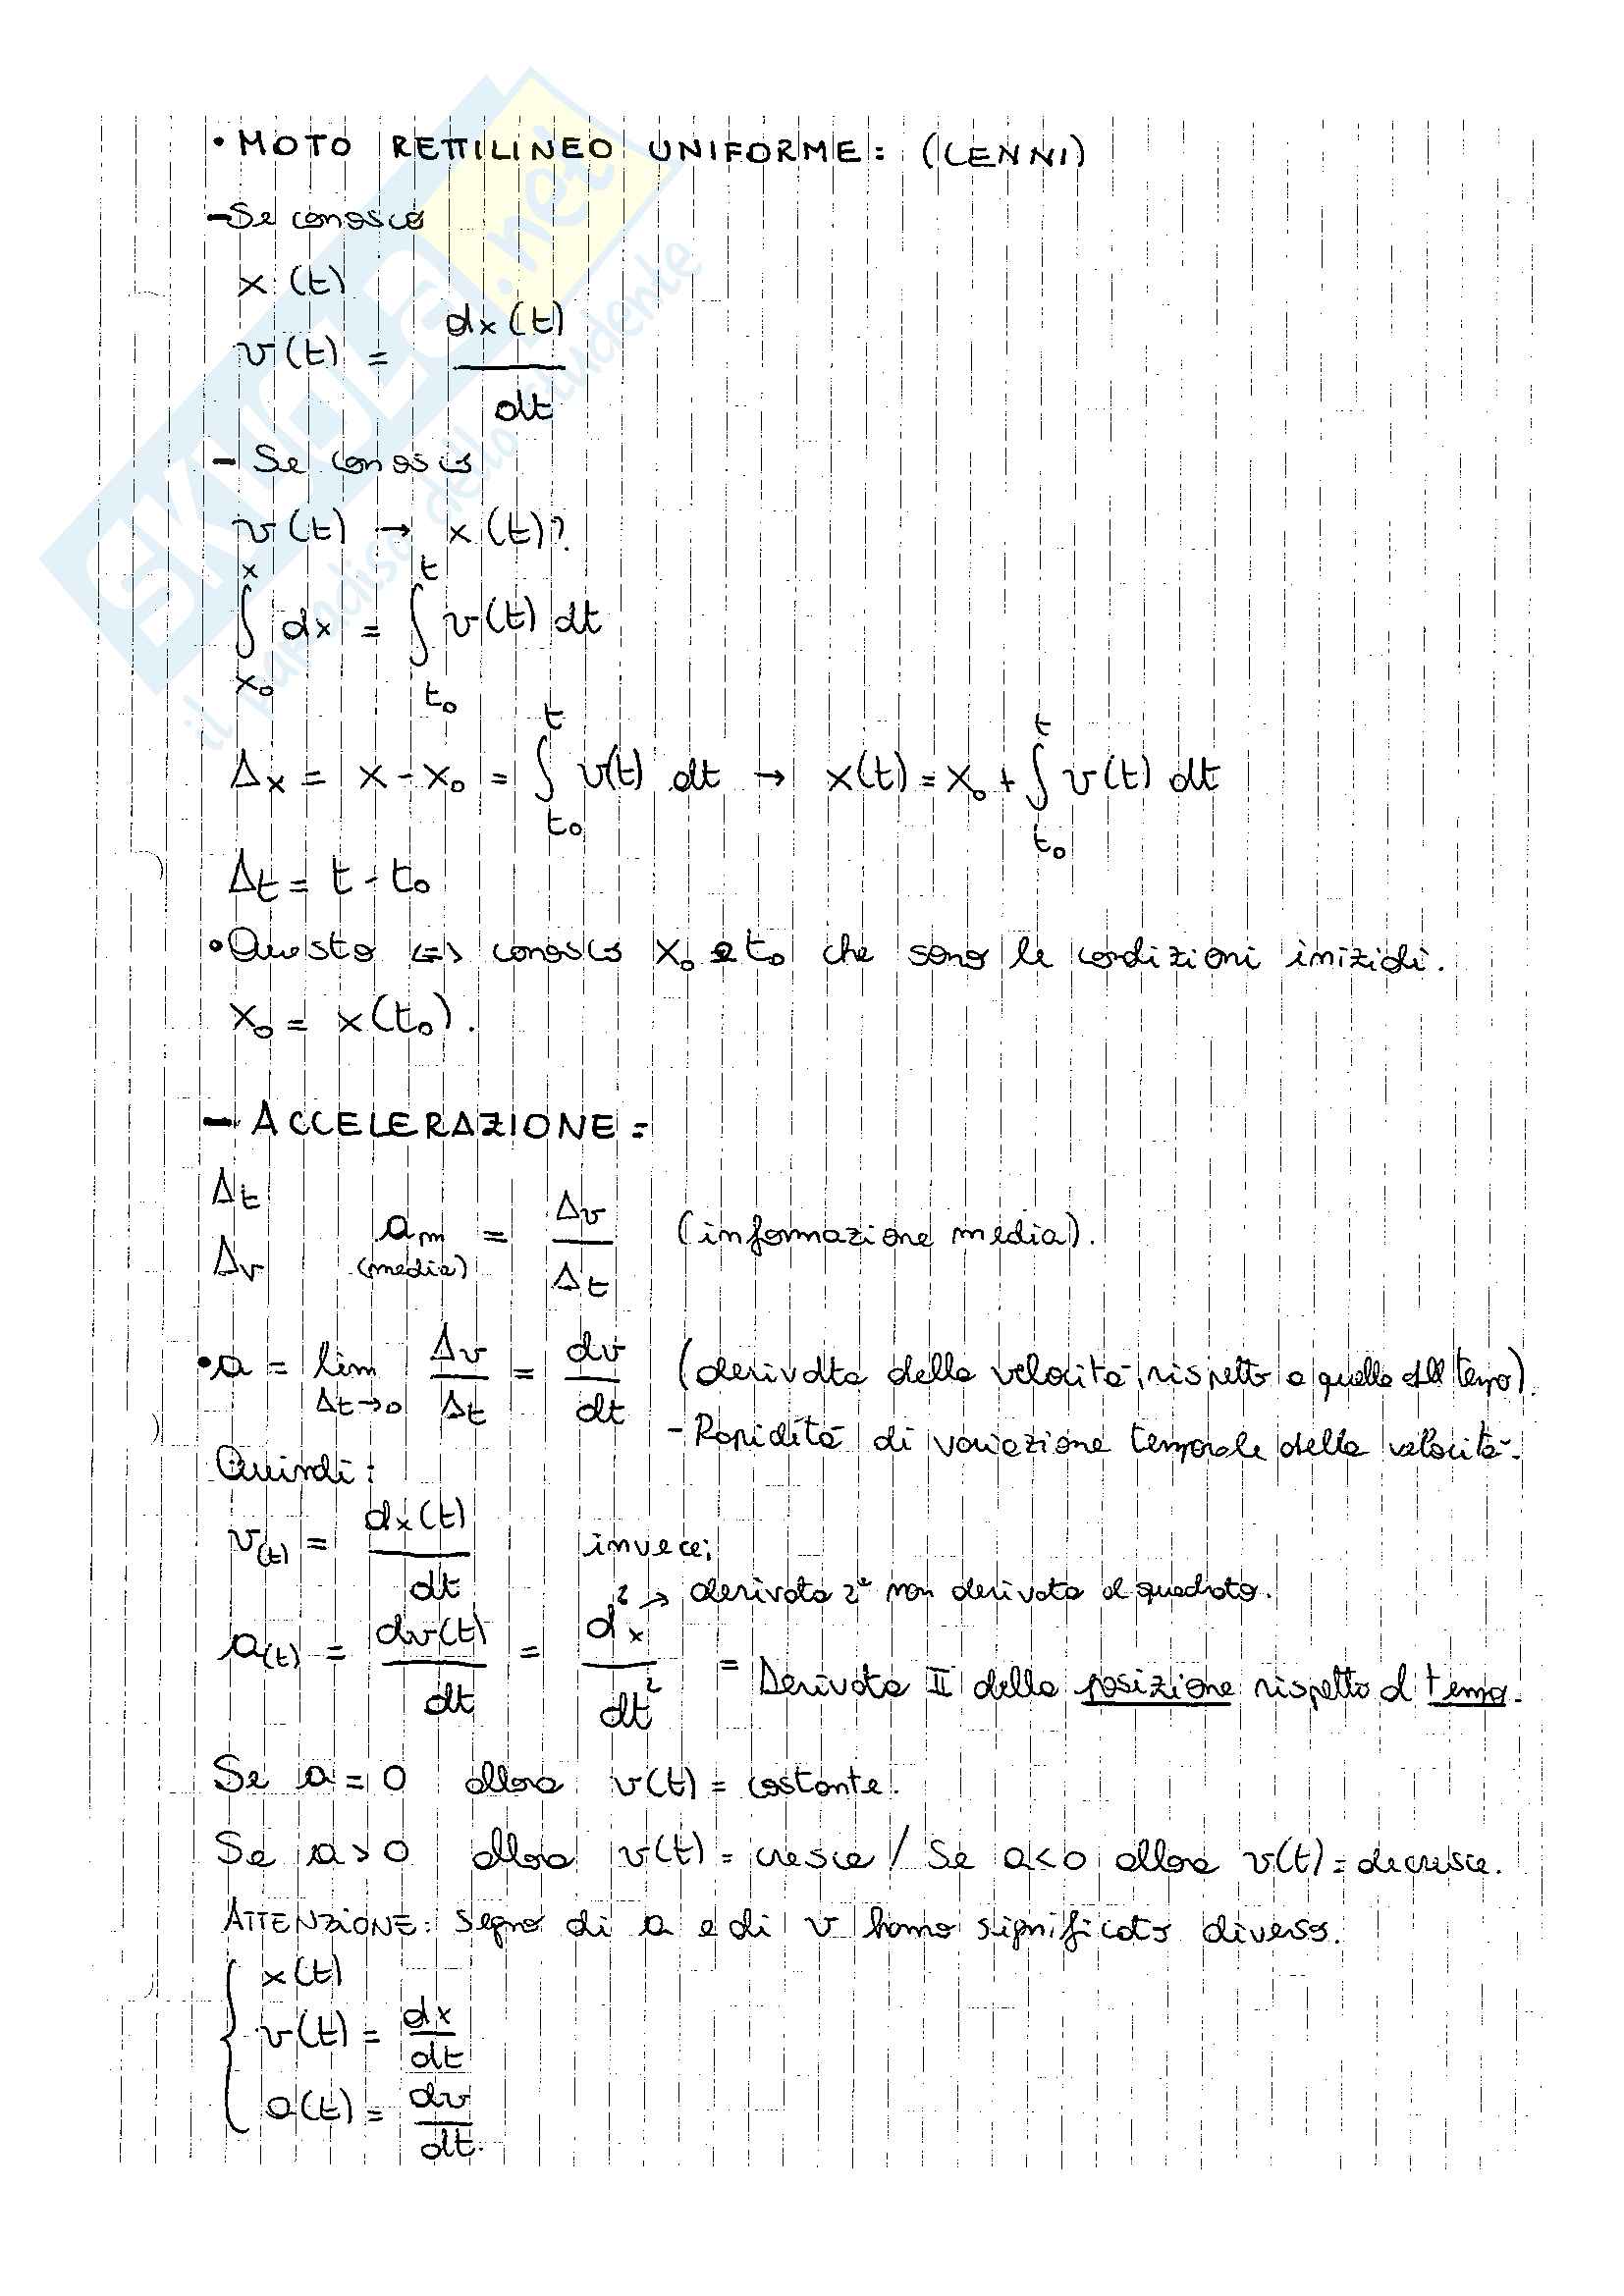 • MOTO RETTILINEO UNIFORME: (CENNI)
- Se conosco
x (t)
v(t) = dx(t) / dt
- Se conosco
v(t) → x(t)?
∫_{x₀}^{x} dx = ∫_{t₀}^{t} v(t) dt
Δx = x - x₀ = ∫_{t₀}^{t} v(t) dt → x(t) = x₀ + ∫_{t₀}^{t} v(t) dt
Δt = t - t₀
• Questo <=> conosco x₀ e t₀ che sono le condizioni iniziali.
x₀ = x(t₀).
- ACCELERAZIONE:
Δt
Δv
a_m (media) = Δv / Δt (informazione media).
• a = lim_{Δt→0} Δv / Δt = dv / dt (derivata della velocità rispetto a quella del tempo).
- Rapidità di variazione temporale della velocità.
Quindi:
v(t) = dx(t) / dt invece;
² → derivata 2ª non derivata al quadrato.
a(t) = dv(t) / dt = d²x / dt² = Derivata II della posizione rispetto al tempo.
Se a = 0 allora v(t) = costante.
Se a > 0 allora v(t) = cresce / Se a < 0 allora v(t) = decresce.
ATTENZIONE: segno di a e di v hanno significato diverso.
{ x(t)
v(t) = dx / dt
a(t) = dv / dt.
SKUOLA.net
il paradiso dello studente